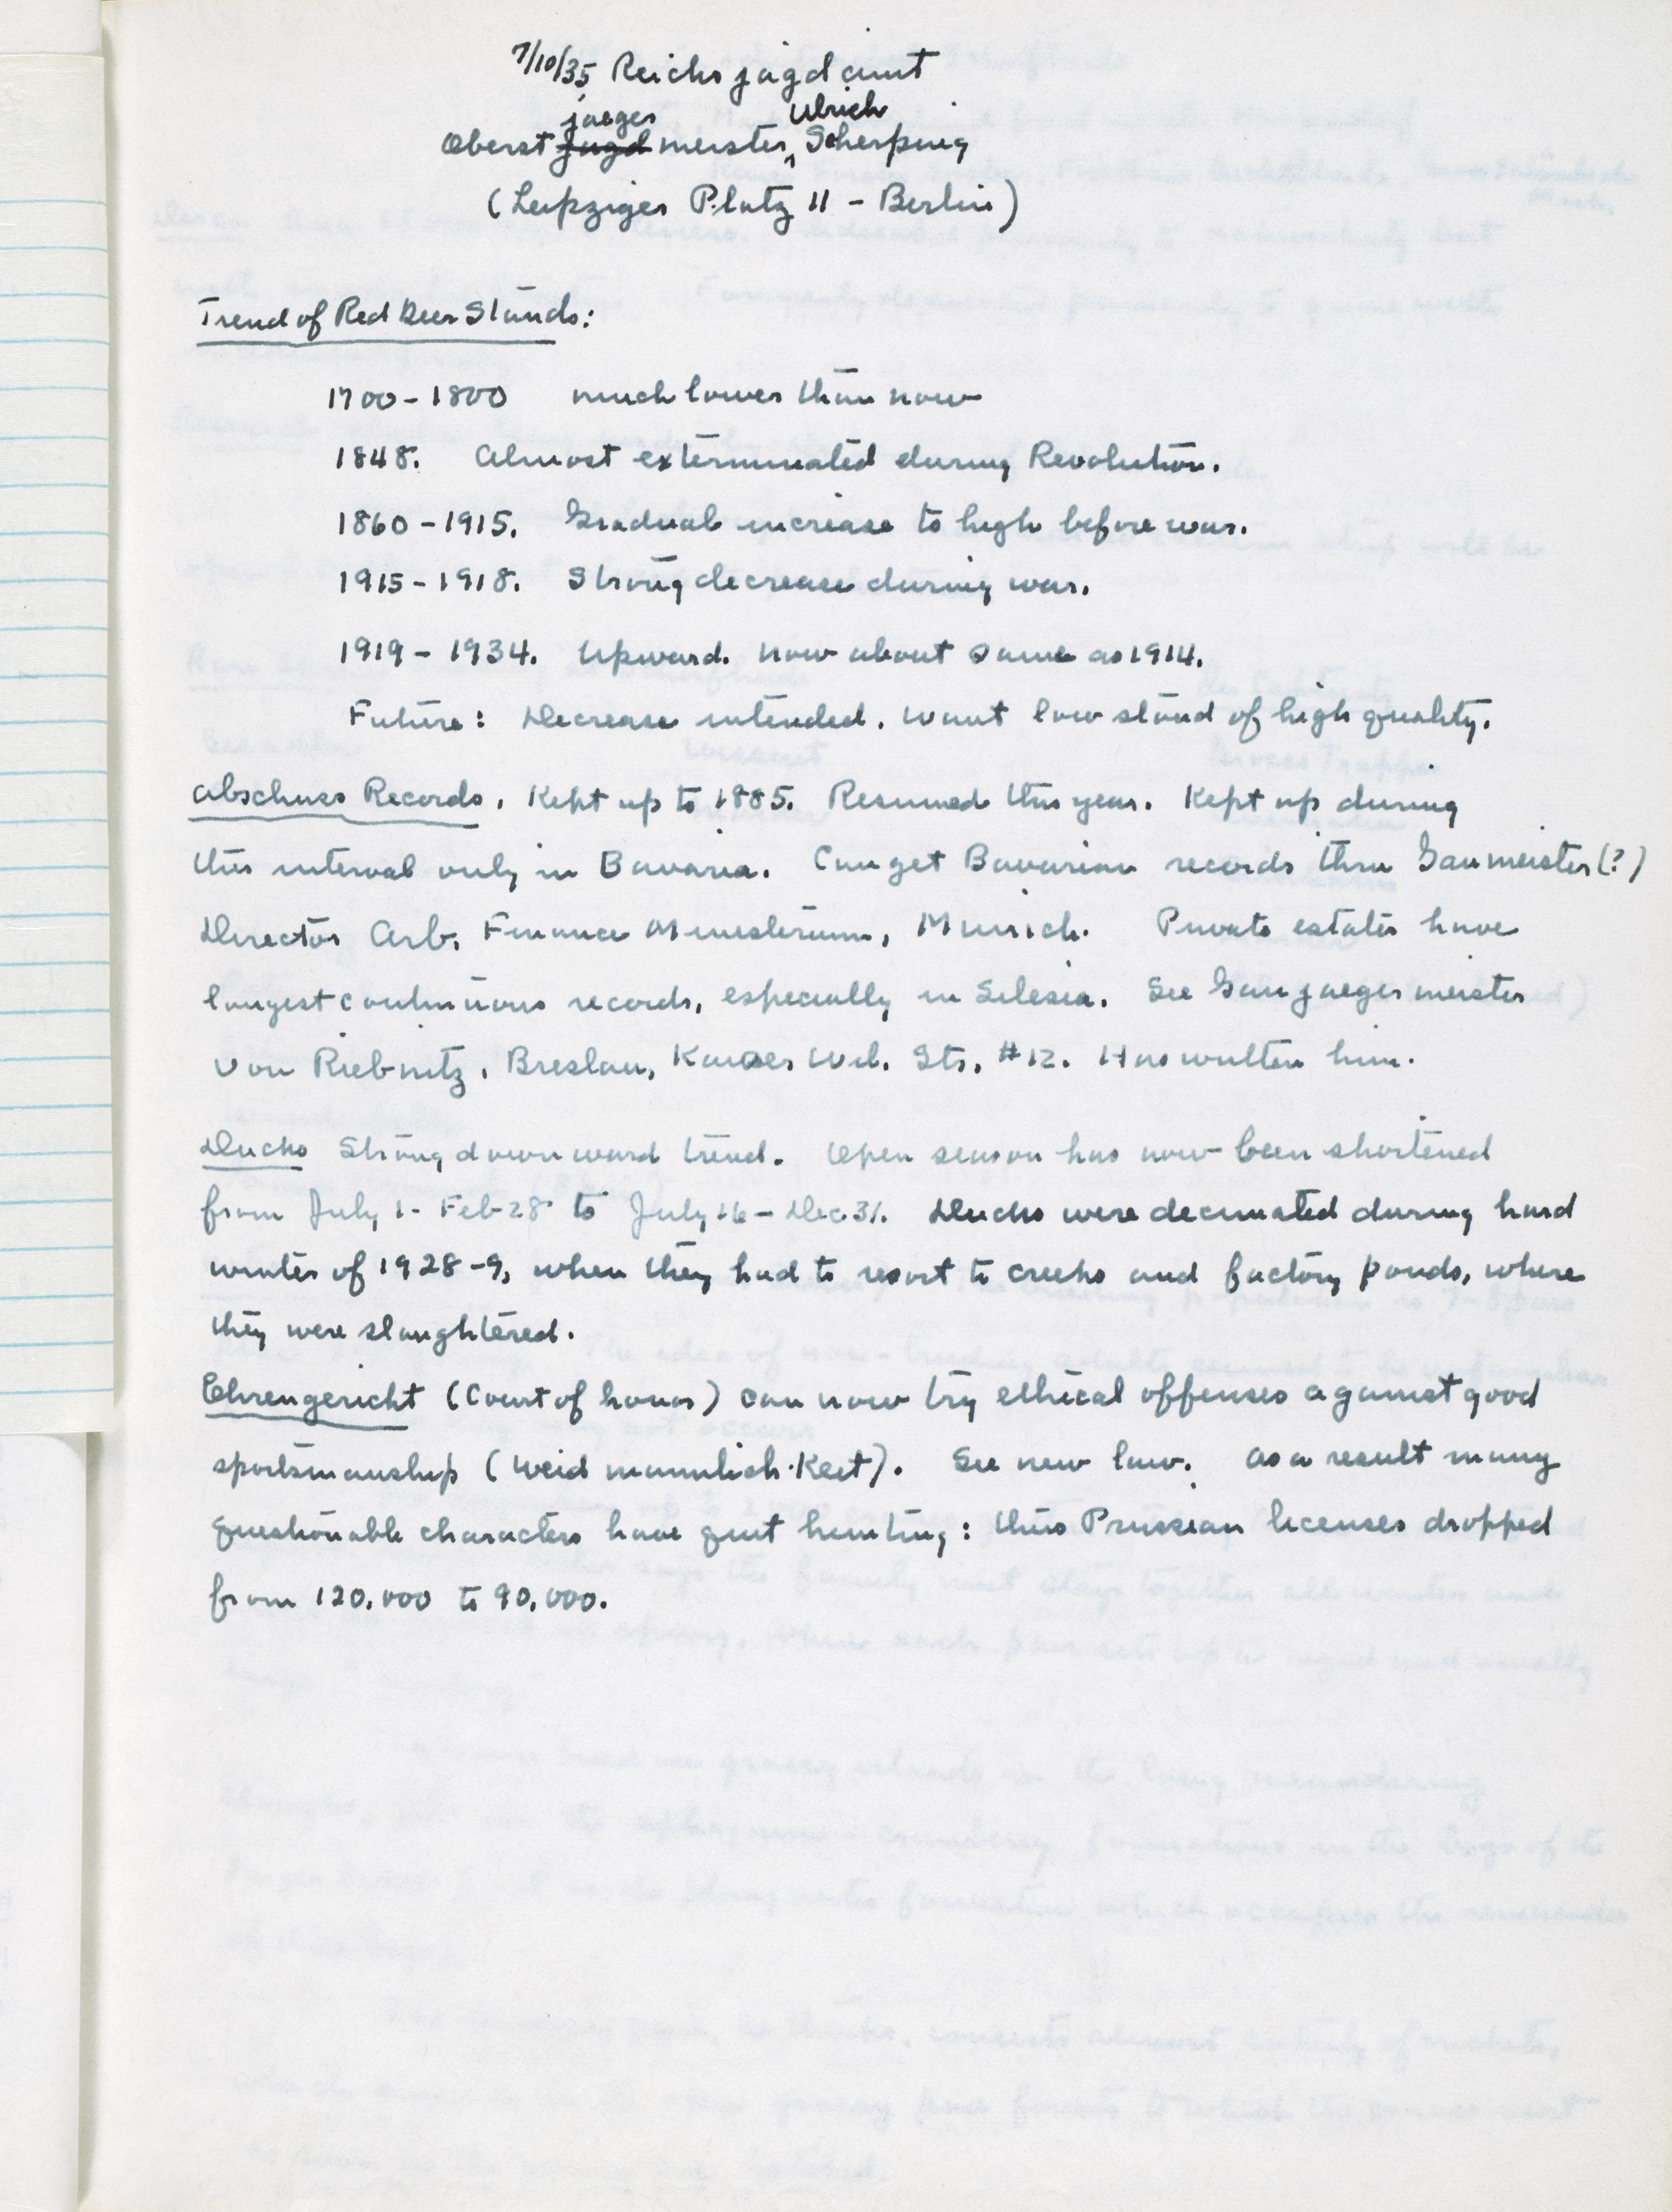 7/10/35 Reichsjagdamt
jaeger Ulrich
Oberst Jagd meister, Scherping
(Leipziger Platz 11 - Berlin)
Trend of Red Deer Stands:
1700-1800 much lower than now
1848. Almost exterminated during Revolution.
1860-1915. Gradual increase to high before war.
1915-1918. Strong decrease during war.
1919-1934. Upward. Now about same as 1914.
Future: Decrease intended. Want low stand of high quality.
Abschuss Records. Kept up to 1885. Resumed this year. Kept up during
this interval only in Bavaria. Can get Bavarian records thru Gaumeister(?)
Director Arb. Finance Ministerium, Munich. Private estates have
longest continuous records, especially in Silesia. See Gaujaegermeister
von Riebnitz, Breslau, Kaiser Wil. Str. #12. Has written him.
Ducks Strong downward trend. Open season has now been shortened
from July 1 - Feb 28 to July 16 - Dec 31. Ducks were decimated during hard
winter of 1928-9, when they had to resort to creeks and factory ponds, where
they were slaughtered.
Ehrengericht (Court of honor) can now try ethical offenses against good
sportsmanship (Weidmannlich-Keit). See new law. As a result many
questionable characters have quit hunting: thus Prussian licenses dropped
from 120,000 to 90,000.